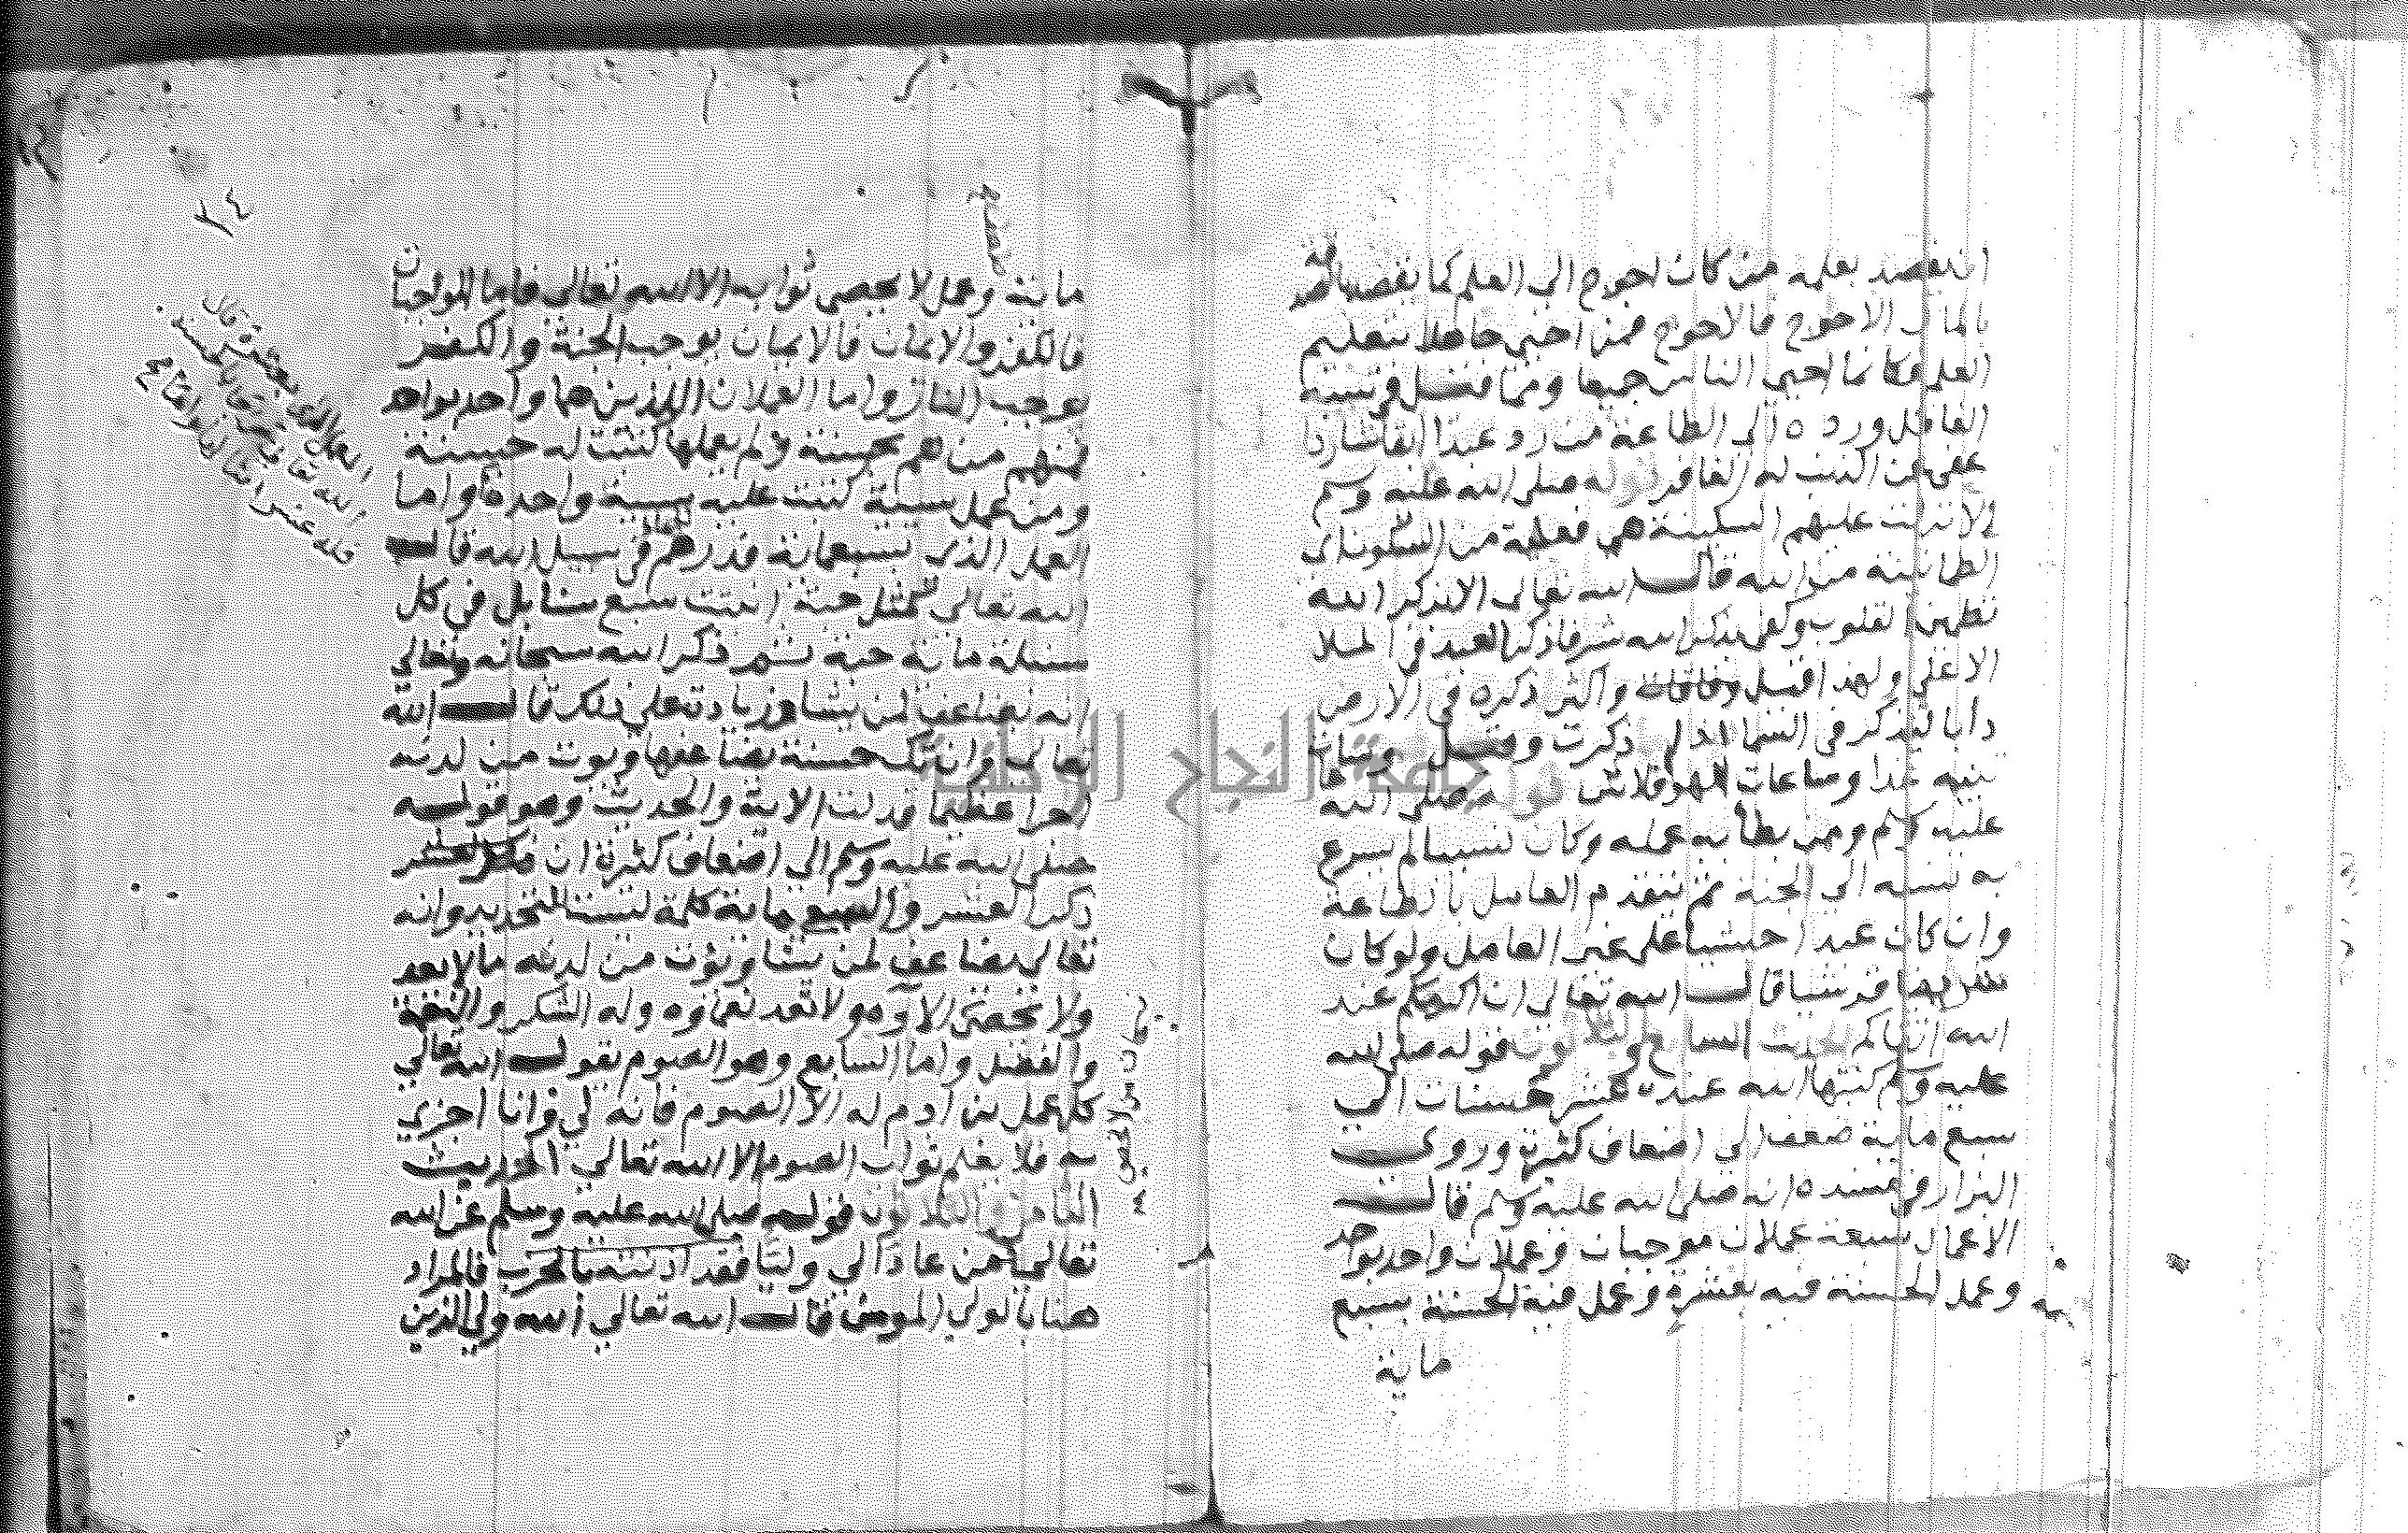 ان يقصد بعلمه من كان احوج الي العلم كما يقصد
بالمال الاحوج فالاحوج فمن احيي جاهلا بتعليم
العلم فكانما احيي الناس جميعا ومما فضل في تنبيه
الغافل ورده الي الطاعة من رد عبدا
عفي عن الذنب له الغافر قوله صلى الله عليه وسلم
الا نزلت عليهم السكينة هي فعيلة من السكون اي
الطمانينة من الله قال الله تعالى الا بذكر الله
تطمين القلوب وكفي بذكر الله شرفا ذكر العبد في الملا
الاعلي ولهذا قيل واكثر ذكره في الارض
دابا لتذكر في السما اذا ذكرت وقيل
تنبيه غدا وساعات قوله صلى الله
عليه وسلم ومن بطأ به عمله وكان نسيبا لم يسرع
به نسبه الي الجنة ثم يتقدم العامل بالطاعة
وان كان عبدا حبشيا علي غير العامل ولو كان
قرشيا قال الله تعالى ان اكرمكم عند
الله اتقاكم الحديث السابع والثلاثون قوله صلى الله
عليه وسلم كتبها الله عنده عشر حسنات الي
سبع ماية ضعف الي اضعاف كثيرة وروي
البزار في مسنده انه صلى الله عليه وسلم قال
الاعمال سبعة عملان موجبان وعملان واحد بواحد
وعمل الحسنة فيه بعشرة وعمل فيه الحسنة بسبع
ماية
٢٤
ماية وعمل لا يحصي ثوابه الا الله تعالي فاما الموجبان
فالكفر والايمان فالايمان يوجب الجنة والكفر
يوجب النار واما العملان اللذين هما واحد بواحد
فمنهم من هم بحسنة ولم يعملها كتبت له حسنة
ومن عمل سيئة كتبت عليه سيئة واحدة واما
العمل الذي بسبعماية فدرهم في سبيل الله قال
الله تعالى كمثل حبة انبتت سبع سنابل في كل
سنبلة ماية حبة ثم ذكر الله سبحانه وتعالي
انه يضاعف لمن يشا زيادة علي ذلك قال الله
تعالى وان تك حسنة يضاعفها ويوت من لدنه
اجرا عظيما فدلت الاية والحديث وهو قوله
صلى الله عليه وسلم الي اضعاف كثيرة ان
ذكر العشر والسبع ماية كلمة ليست للتحديد وانه
تعالي يضاعف لمن يشا ويؤت من لدنه ما لا يعد
ولا يحصي الاؤه ولا تعد نعماوه وله الشكر والنعمة
والفضل واما السابع وهو الصوم يقول الله تعالي
كل عمل بن ادم له الا الصوم فانه لي وانا اجزي
به فلا يعلم ثواب الصوم الا الله تعالي الحديث
الثامن والثلاثون قوله صلى الله عليه وسلم عن الله
تعالي من عادا لي وليا فقد اذنته بالحرب فالمراد
هنا بالولي المومن قال الله تعالي الله ولي الذين
العمل الذي بعشرة قال